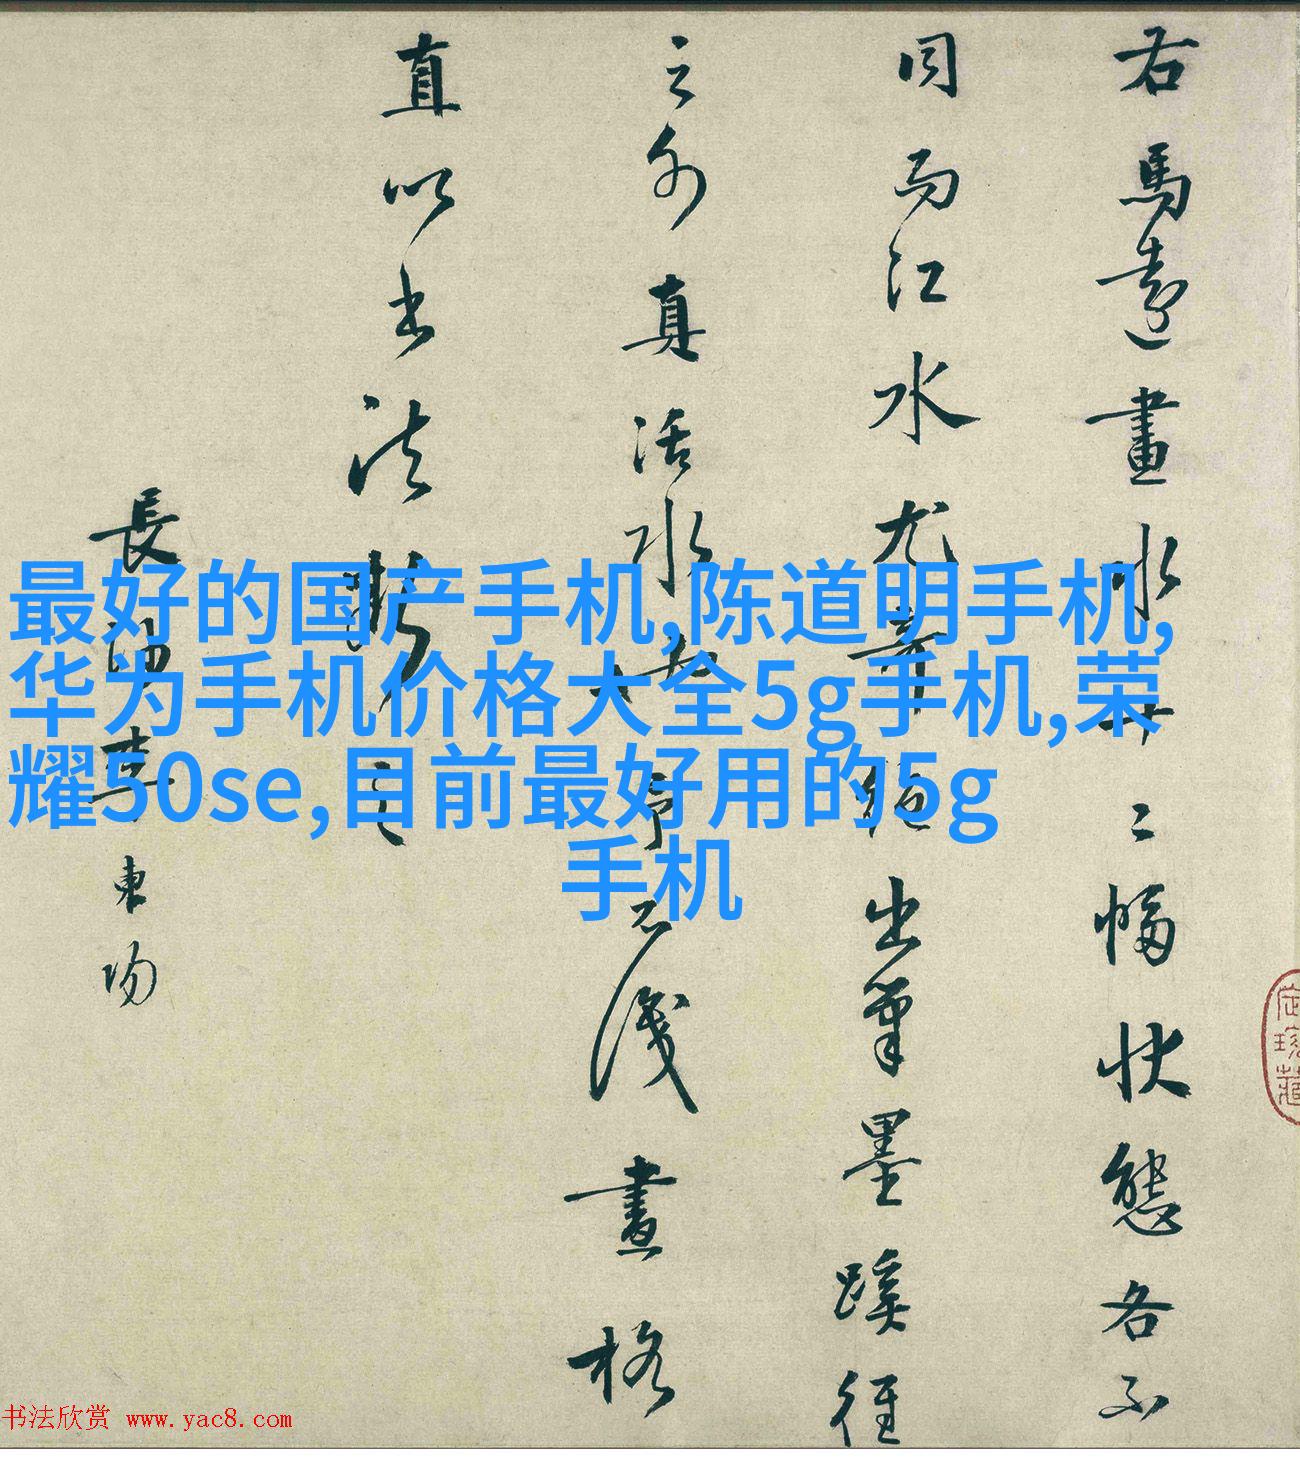 右馬遠畫水十二幅狀態各不
同而江水尤奇絕出筆墨蹊徑
之外真活水也予不識畫格
直以書法斷之
長沙李東陽
最好的国产手机,陈道明手机,
华为手机价格大全5g手机,荣
耀50se,目前最好用的5g
手机
书法欣赏 www.yac8.com